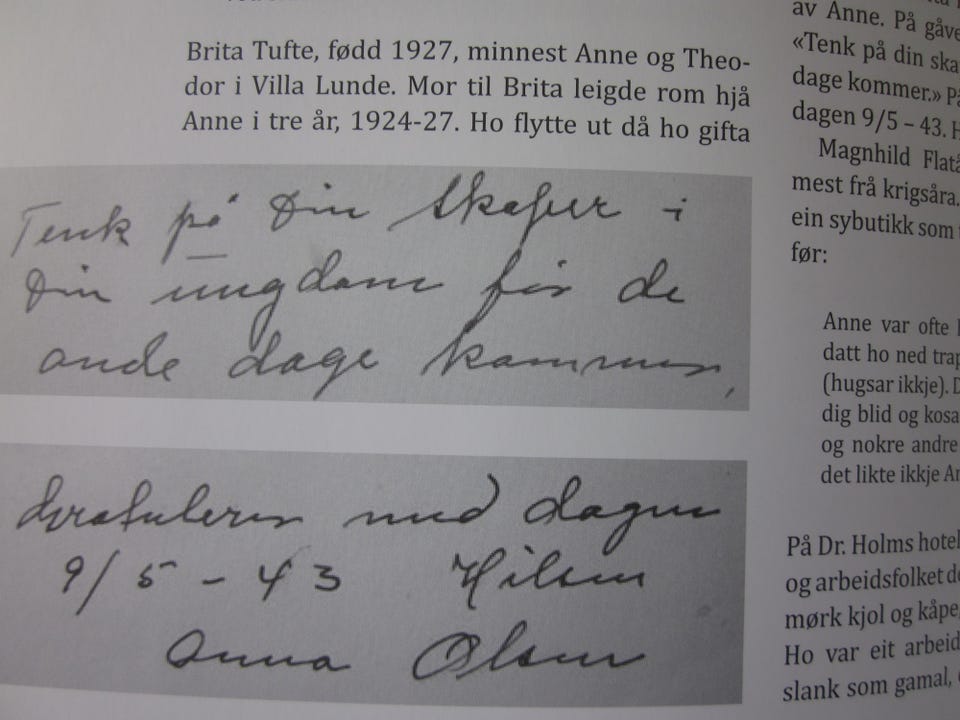 Brita Tufte, fødd 1927, minnest Anne og Theo-
dor i Villa Lunde. Mor til Brita leigde rom hjå
Anne i tre år, 1924-27. Ho flytte ut då ho gifta
Tenk på Din Skaper i
Din ungdom før de
onde dage kommer,
Gratulerer med dagen
9/5 - 43 Hilsen
Anna Olsen
av Anne. På gåve
«Tenk på din ska
dage kommer.» På
dagen 9/5 – 43. H
Magnhild Flatå
mest frå krigsåra.
ein sybutikk som
før:
Anne var ofte
datt ho ned trap
(hugsar ikkje). D
dig blid og kosa
og nokre andre
det likte ikkje An
På Dr. Holms hotel
og arbeidsfolket de
mørk kjol og kåpe,
Ho var eit arbeid
slank som gamal,